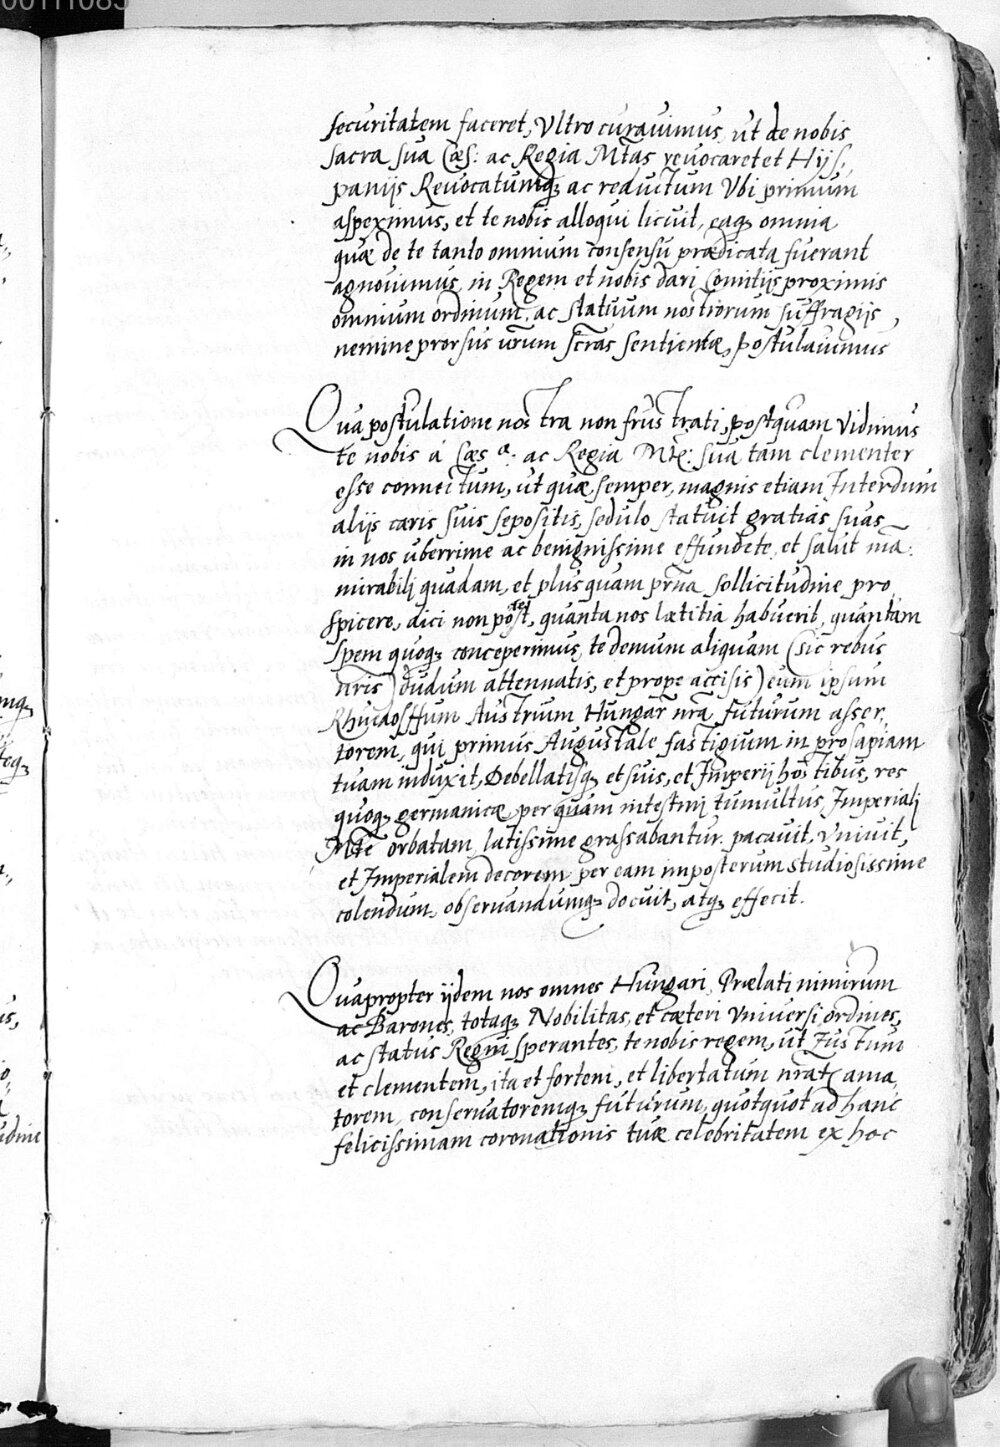 securitatem faceret, Ultro curavimus, ut de nobis
sacra sua Cæs: ac Regia Mtas revocaret et Hijs,
panijs Revocatumq; ac reductum Ubi primum
aspeximus, et te nobis alloqui licuit, eaq; omnia
quæ de te tanto omnium consensu prædicata fuerant
agnovimus, in Regem et nobis dari Comitijs proximis
omnium ordinum, ac statuum nostrorum suffragijs,
nemine prorsus vrum scras sentientæ, postulavimus
Qua postulatione nostra non frustrati, postquam Vidimus
te nobis á Cæs a: ac Regia Mte: sua tam clementer
esse connectum, ut quæ semper, magnis etiam Interdum
alijs caris suis sepositis, sedulo statuit gratias suas
in nos uberrime ac benignissime effundete, et salut nra:
mirabilj quadam, et plusquam prna sollicitudine pro,
spicere, dici non potest, quanta nos lætitia habuerit, quantam
spem quoq; conceperimus, te demum aliquam (sic rebus
nris) dudum attenuatis, et prope accisis) eum ipsum
Rhudolffum Austrium Hungar nra futurum asser,
torem, qui primus Augustale fastigium in prosapiam
tuam induxit, Debellatisq; et suis, et Imperij hostibus, res
quoq; germanicæ per quam intestinj tumultus, Imperialj
Mte orbatam, latissime grassabantur. pacavit, Univit,
et Imperialem decorem per eam imposterum studiosissime
colendum, observandumq; docuit, atq; effecit.
Quapropter ijdem nos omnes Hungari, Prælati nimirum
ac Barones, totaq; Nobilitas, et cæteri Universi ordines,
ac status Regni sperantes, te nobis regem, ut Justum
et clementem, ita et fortem, et libertatum nrar ama,
torem, conservatoremq; futurum, quotquot ad hanc
felicissimam coronationis tuæ celebritatem ex hoc